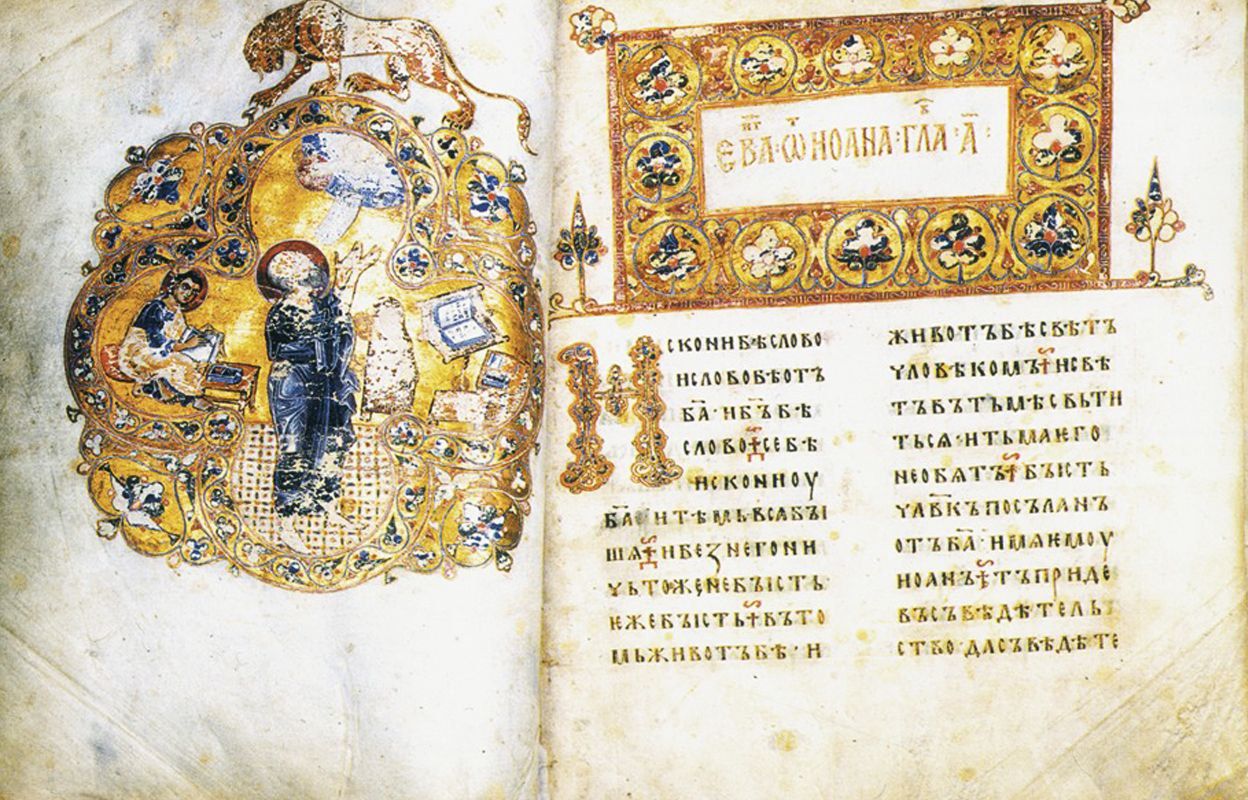 ЄВА҃Г · Ѡ҃Т ИОАНА · ГЛА҃В · А҃ ·
ИСКОНИ БѢ СЛОВО
И СЛОВО БѢ ОТЪ
Б҃А · И Б҃Ъ БѢ
СЛОВО СЕ БѢ
ИСКОНИ ОУ
Б҃А · И ТѢМЬ ВСА БЫ
ШѦ И БЕЗ НЕГО НИ
ЧЬТОЖЕ НЕ БЪІСТЬ ·
ЕЖЕ БЪІСТЬ ВЪ ТО
МЬ ЖИВОТЪ БѢ · И
ЖИВОТЪ БѢ СВѢТЪ
ЧЛОВѢКОМЪ И СВѢ
ТЪ ВЪ ТЬМѢ СВЬТИ
ТЬСѦ · И ТЬМА ѤГО
НЕ ОБѦТЪ БЪІСТЬ
ЧЛ҃ВКЪ ПОСЪЛАНЪ
ОТЪ Б҃А · ИМѦ ѤМОУ
ИОАНЪ ТЪ ПРИДЕ
ВЪ СЪВѢДѢТЕЛЬ
СТВО · ДА СЪВѢДѢТЕ